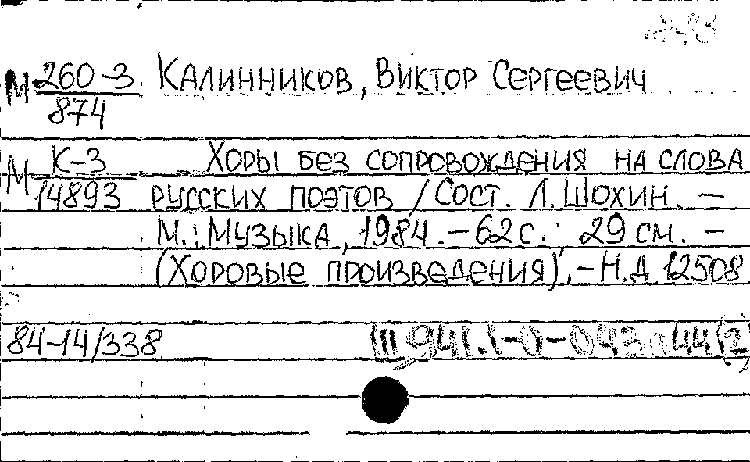 М 260-3 Калинников, Виктор Сергеевич
874
М К-3 Хоры без сопровождения на слова
14893 русских поэтов / Сост. Л. Шохин. –
М.: Музыка, 1984. – 62 с.; 29 см. –
(Хоровые произведения). – Н.д. 12508
84-14/338